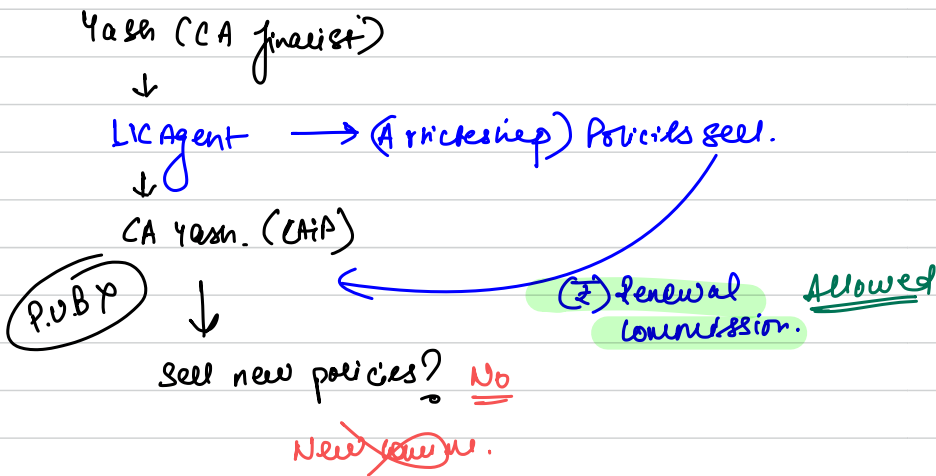 Yash (CA finalist)
↓
LIC Agent → (Articleship) Policies sell.
↓
CA Yash. (CAiP)
P.U.B X
(₹) Renewal commission. Allowed
Sell new policies? No
New comm.